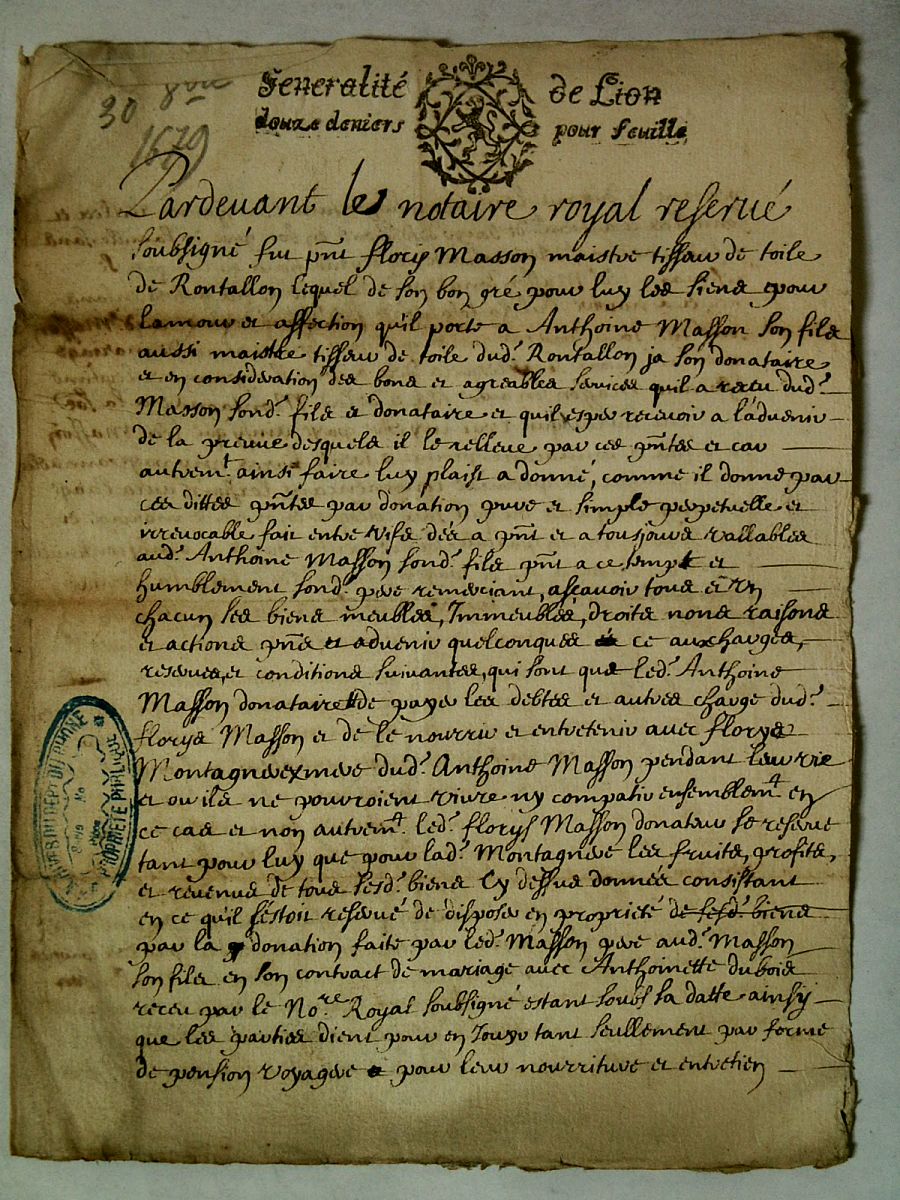 30 8bre
1679
Generalité de Lion
douze deniers pour feuille
Pardevant le notaire royal reservé
soubsigné fut pñt florys Masson maistre tisseur de toile
de Rontallon lequel de son bon gré pour luy les siens pour
lamour et affection qu'il porte a Anthoine Masson son fils
aussi maistre tisseur de toile dud. Rontallon ja son donataire
et en consideration des bons et agreables services quil a receu dud.
Masson sond. fils et donataire et quil espere recevoir a l'advenir
de la preuve desquels il le relleve par ces pñtes et car
autremt. ainsi faire luy plaist a donné, comme il donne par
ces dittes pñtes par donation pure et simple perpetuelle et
irrevocable fait entre vifs dés a pñt et a tousjours vallables
aud. Anthoine Masson sond. fils pñt a ce temps et
humblement sond. pere remerciant, ascavoir tous et un
chacun ses biens meubles, Immeubles, droits noms raisons
et actions pñs et advenir quelconques ce aux charges,
reserves, et conditions suivantes, qui sont que led. Anthoine
Masson donataire de payer les debtes et autres charge dud.
florys Masson et de le nourrir et entretenir avec florys
Montagner mere dud. Anthoine Masson pendant leur vie
et ou ils ne pourroient vivre ny compatir ensemblemt. en
ce cas et non autremt. led. florys Masson donateur se reserve
tant pour luy que pour lad. Montagnere les fruits, profits,
et revenus de tous sesd. biens cy dessus donnés consistant
en ce qu'il s'estoit reservé de disposer en proprieté de sesd. biens
par la donation faite par led. Masson pere aud. Masson
son fils en son contract de mariage avec Anthoinette dubois
receu par le Nore. Royal soubsigné estant soubs sa datte ainsy
que les parties dient pour en Jouyr tant seullement par forme
de pension viagere pour leur nourriture et entretien
PROPRIETE PUBLIQUE